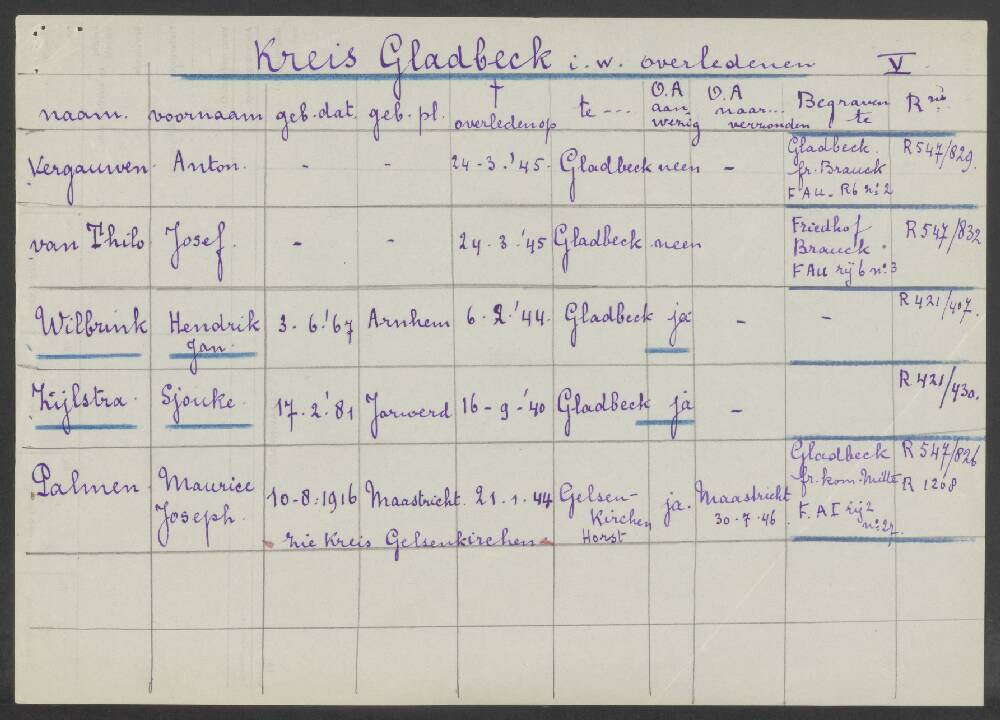 Kreis Gladbeck i.w. overledenen V
naam. voornaam geb. dat. geb. pl. † overleden op te --- O.A aanwezig O.A naar... verzonden Begraven te R nis
Vergauwen. Anton. - - 24-3.'45. Gladbeck neen - Gladbeck. fr. Brauck F AU. R6 no: 2 R 547/829.
van Thilo Josef. - - 24-3-'45 Gladbeck neen Friedhof Brauck. F AU rij 6 no. 3 R 547/832
Wilbrink Hendrik Jan. 3. 6.'67 Arnhem 6-2.'44. Gladbeck ja - - R 421/407.
Zijlstra. Sjouke. 17.2.'81 Jorwerd 16-9-'40 Gladbeck ja - R 421/430.
Palmen. Maurice Joseph. 10-8-1916 Maastricht. 21.1.44 Gelsen-Kirchen Horst ja. Maastricht 30.7.46. Gladbeck fr. kom. Mitte F. A I rij 2 no: 27. R 547/826 R 1208
- zie Kreis Gelsenkirchen -